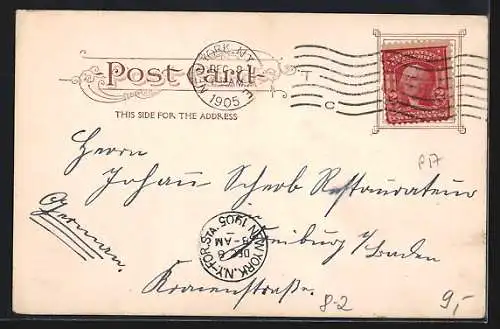 Post Card
NEW YORK, N.Y.
DEC 8
1905
T
C
THIS SIDE FOR THE ADDRESS
Herrn
Johann Scherb Restaurateur
Freiburg i/Baden
Kronenstraße.
Germany.
NEW YORK, N.Y.-FOR. STA.
DEC 8
8-AM
1905
P17
8-2
9,-